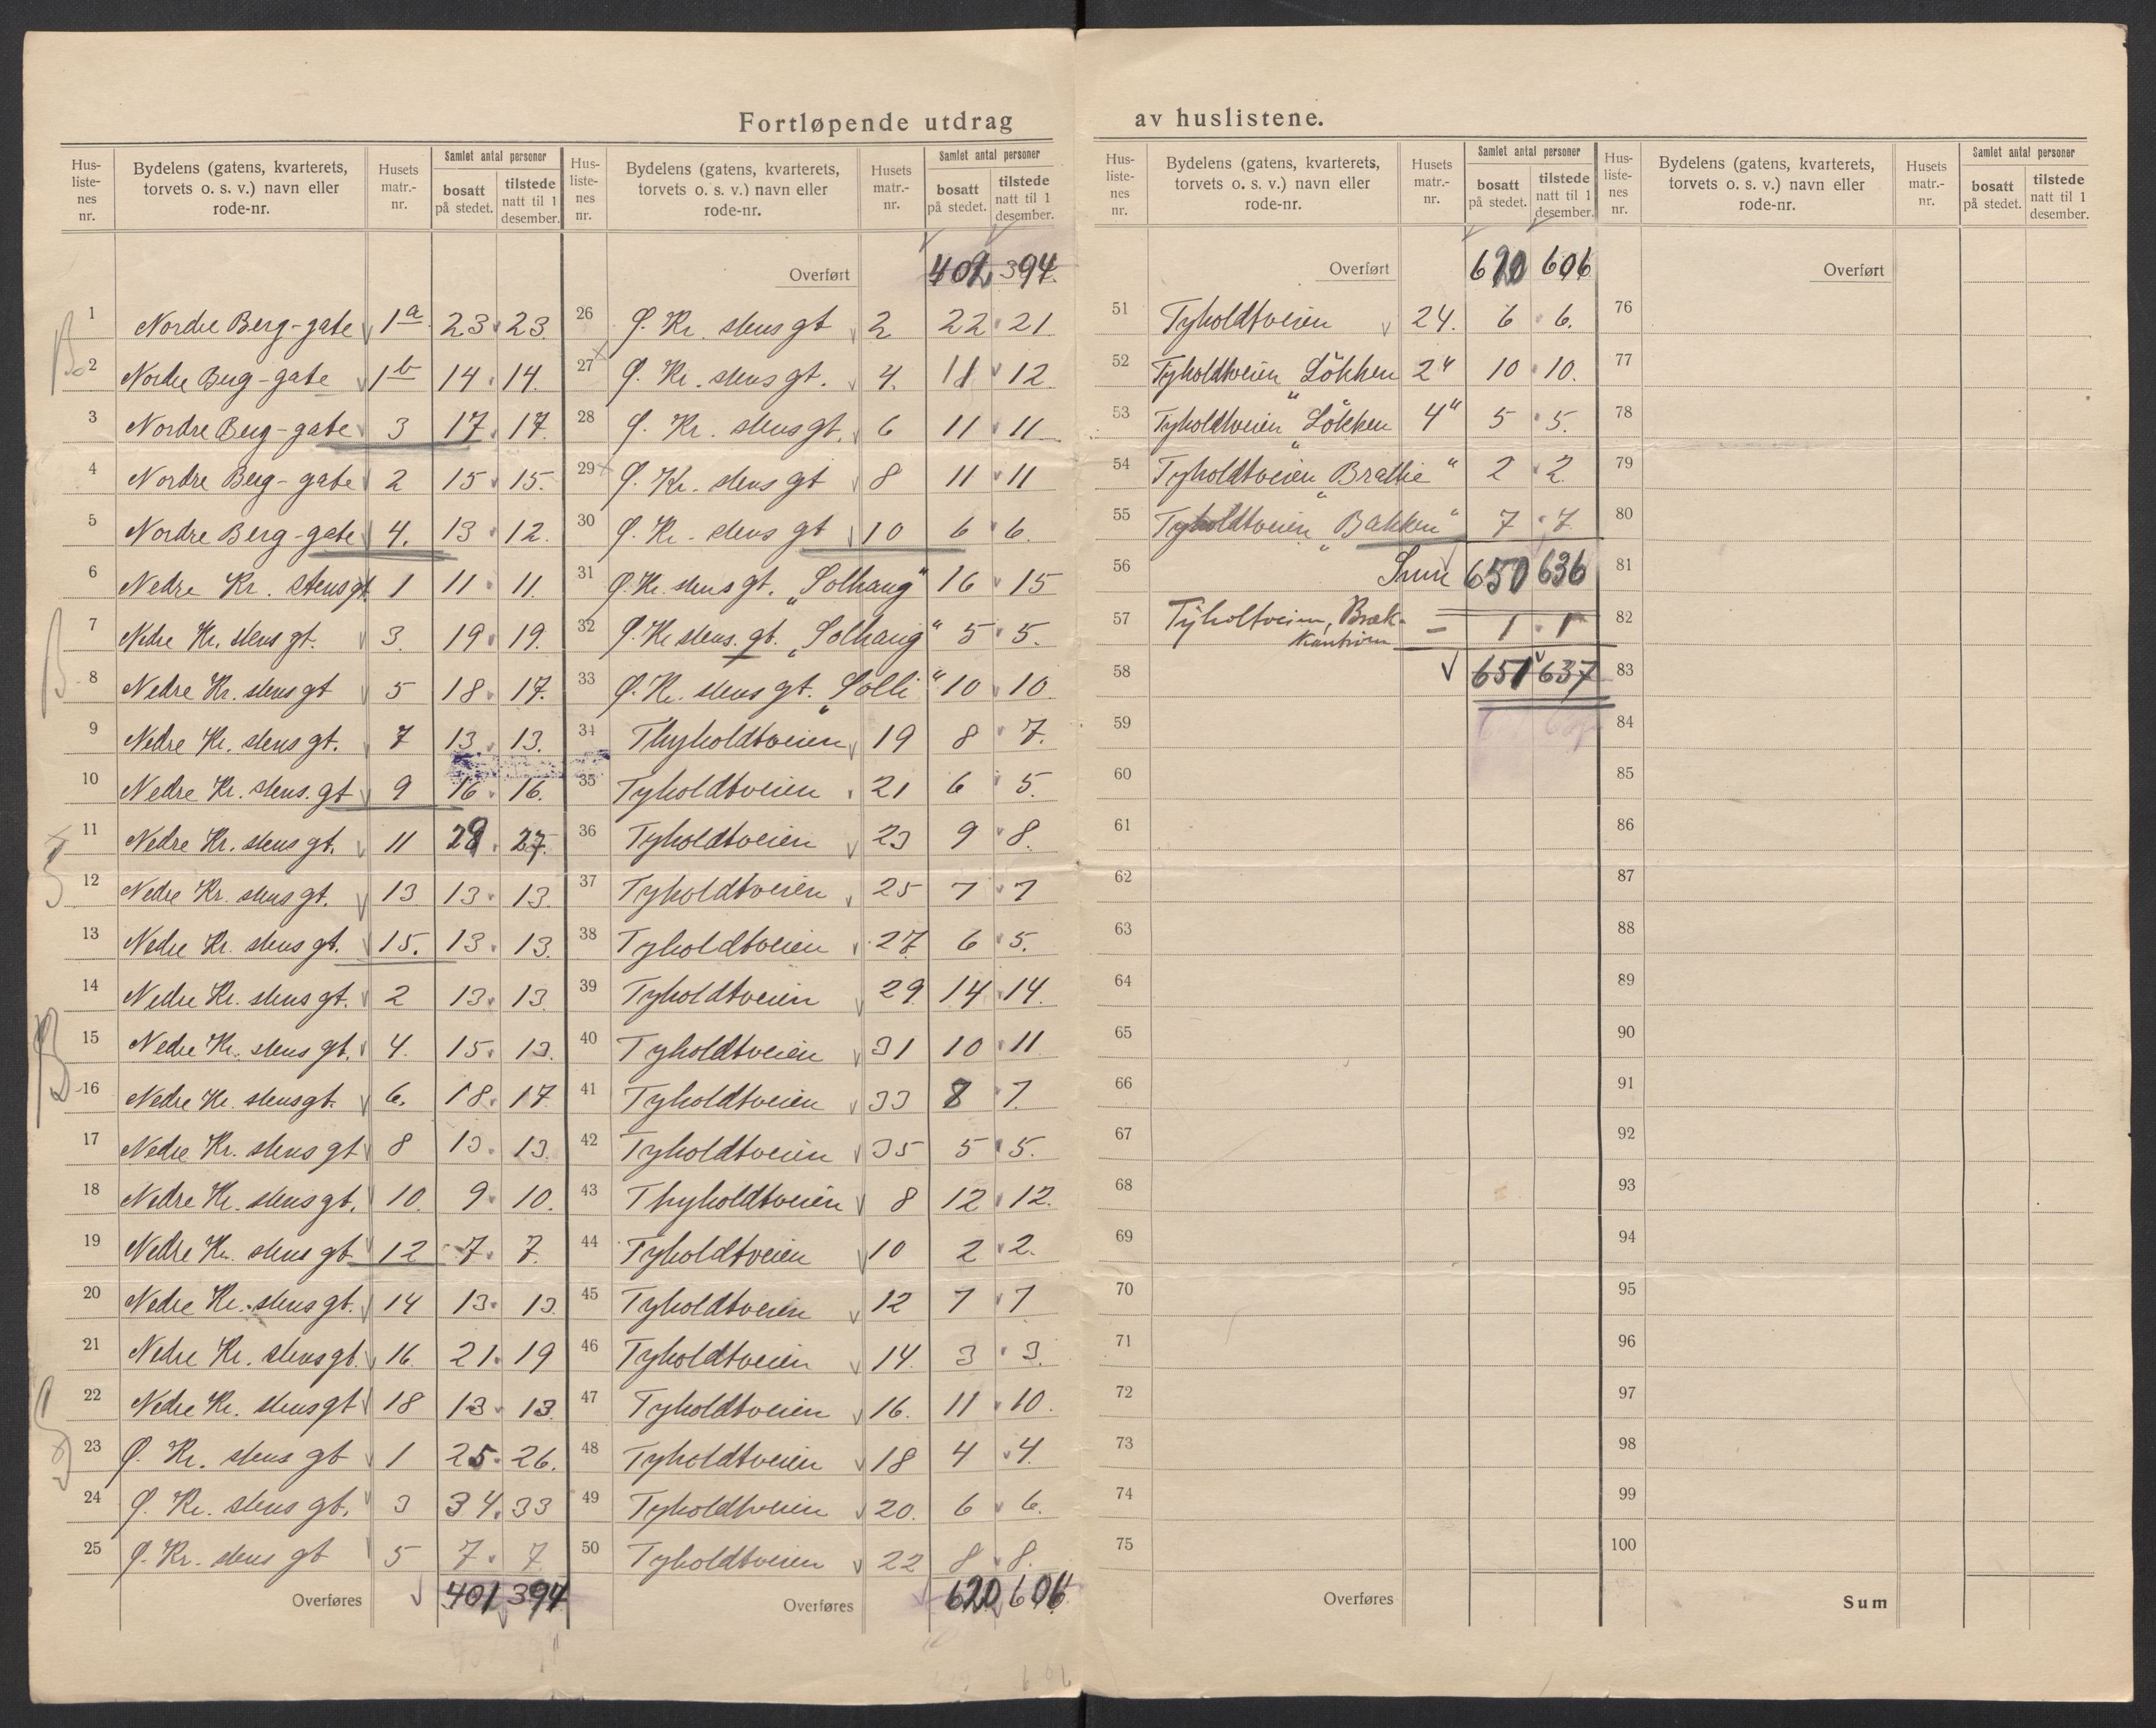 Fortløpende utdrag av huslistene.
Hus-liste-nes nr. | Bydelens (gatens, kvarterets, torvets o. s. v.) navn eller rode-nr. | Husets matr.-nr. | Samlet antal personer | bosatt på stedet. | tilstede natt til 1 desember.
1 Nordre Berg-gate 1a 23 23
2 Nordre Berg-gate 1b 14 14.
3 Nordre Berg-gate 3 17 17
4 Nordre Berg-gate 2 15 15.
5 Nordre Berg-gate 4. 13 12.
6 Nedre Kr. stensgt. 1 11 11.
7 Nedre Kr. stens gt. 3. 19 19.
8 Nedre Kr. stens gt 5 18 17.
9 Nedre Kr. stens gt. 7 13 13.
10 Nedre Kr. stens. gt 9 16 16.
11 Nedre Kr. stens gt. 11 28 27.
12 Nedre Kr. stens gt. 13 13 13.
13 Nedre Kr. stens gt. 15. 13 13.
14 Nedre Kr. stens gt. 2 13 13
15 Nedre Kr. stens gt. 4. 15 13.
16 Nedre Kr. stensgt. 6. 18 17
17 Nedre Kr. stens gt 8 13 13.
18 Nedre Kr. stens gt. 10. 9 10.
19 Nedre Kr. stens gt 12 7 7.
20 Nedre Kr. stens gt. 14 13 13.
21 Nedre Kr. stens gt. 16. 21 19
22 Nedre Kr. stens gt 18 13 13
23 Ø. Kr. stens gt 1 25 26.
24 Ø. Kr. stens gt. 3 34. 33
25 Ø. Kr. stens gt 5 7 7
Overføres 401 394
Hus-liste-nes nr. | Bydelens (gatens, kvarterets, torvets o. s. v.) navn eller rode-nr. | Husets matr.-nr. | Samlet antal personer | bosatt på stedet. | tilstede natt til 1 desember.
Overført 402 394
26 Ø. Kr. stens gt 2 22 21
27 Ø. Kr. stens gt. 4. 11 12
28 Ø. Kr. stens gt. 6 11 11
29 Ø. Kr. stens gt 8 11 11
30 Ø. Kr. stens gt 10 6 6.
31 Ø. Kr. stens gt. „Solhaug“ 16 15
32 Ø. Kr stens. gt. „Solhaug“ 5 5.
33 Ø. Kr. stens gt. „Solli“ 10 10
34 Thyholdtveien 19 8 7.
35 Tyholdtveien 21 6 5.
36 Tyholdtveien 23 9 8.
37 Tyholdtveien 25 7 7
38 Tyholdtveien 27 6 5.
39 Tyholdtveien 29. 14 14.
40 Tyholdtveien 31 10 11
41 Tyholdtveien 33 8 7.
42 Tyholdtveien 35 5 5.
43 Thyholdtveien 8 12 12.
44 Tyholdtveien 10 2 2.
45 Tyholdtveien 12 7 7
46 Tyholdtveien 14. 3 3.
47 Tyholdtveien 16. 11 10.
48 Tyholdtveien 18 4 4.
49 Tyholdtveien 20. 6 6.
50 Tyholdtveien 22 8 8.
Overføres 620 606
Hus-liste-nes nr. | Bydelens (gatens, kvarterets, torvets o. s. v.) navn eller rode-nr. | Husets matr.-nr. | Samlet antal personer | bosatt på stedet. | tilstede natt til 1 desember.
Overført 620 606
51 Tyholdtveien 24. 6 6.
52 Tyholdtveien „Løkken 2“ 10 10.
53 Tyholdtveien „Løkken 4“ 5 5.
54 Tyholdtveien „Brattlie“ 2 2.
55 Tyholdtveien „Bakken“ 7 7.
56 Sum 650 636
57 Tyholtveien, Bræk- – 1 1
58 651 637
59
60
61
62
63
64
65
66
67
68
69
70
71
72
73
74
75
Overføres
Hus-liste-nes nr. | Bydelens (gatens, kvarterets, torvets o. s. v.) navn eller rode-nr. | Husets matr.-nr. | Samlet antal personer | bosatt på stedet. | tilstede natt til 1 desember.
Overført
76
77
78
79
80
81
82
83
84
85
86
87
88
89
90
91
92
93
94
95
96
97
98
99
100
Sum